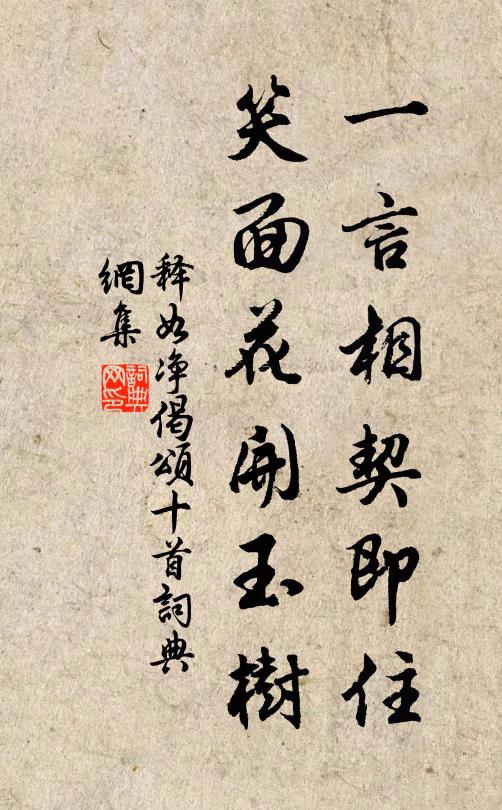 一言相契即住
笑面花開玉樹
釋如净偈頌十首詞典
網集
詞典
网印